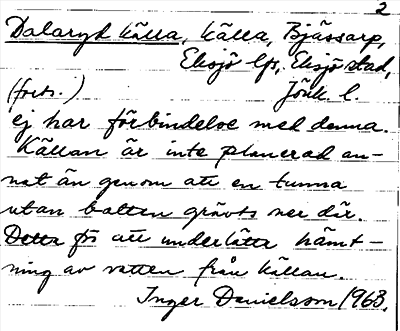 2
Dalaryd källa, källa, Bjässarp,
Eksjö lfs, Eksjö stad,
(forts.) Jönk. l.
ej har förbindelse med denna.
Källan är inte planerad an-
nat än genom att en tunna
utan botten grävts ner där.
Detta för att underlätta hämt-
ning av vatten från källan.
Inger Danielsson 1963.